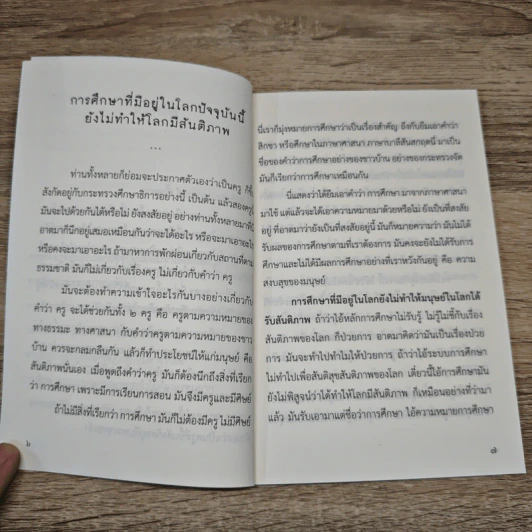 การศึกษาที่มีอยู่ในโลกปัจจุบันนี้
ยังไม่ทำให้โลกมีสันติภาพ
...
ท่านทั้งหลายก็ย่อมจะประกาศตัวเองว่าเป็นครู ก็
สังกัดอยู่กับกระทรวงศึกษาธิการอย่างนี้ เป็นต้น แล้วสองครู
มันจะไปด้วยกันได้หรือไม่ ยังสงสัยอยู่ อย่างท่านทั้งหลายมาที่
อาตมาก็มีนึกอยู่เสมอเหมือนกันว่าจะได้อะไร หรือจะมาเอาอะไร
หรือคงจะมาเอาอะไร ถ้ามาหาการพักผ่อนเกี่ยวกับสถานที่ตาม
ธรรมชาติ มันก็ไม่เกี่ยวกับเรื่องครู ไม่เกี่ยวกับคำว่า ครู
มันจะต้องทำความเข้าใจอะไรกันบางอย่างเกี่ยวกับ
คำว่า ครู จะได้ช่วยกันทั้ง ๒ ครู คือ ครูตามความหมายของ
ทางธรรมะ ทางศาสนา กับคำว่าครูตามความหมายของชาว
บ้าน ควรจะกลมกลืนกัน แล้วก็ทำประโยชน์ให้แก่มนุษย์ คือ
สันติภาพนั่นเอง เมื่อพูดถึงคำว่าครู มันก็ต้องนึกถึงสิ่งที่เรียก
ว่า การศึกษา เพราะมีการเรียนการสอน มันจึงมีครูและมีศิษย์
ถ้าไม่มีสิ่งที่เรียกว่า การศึกษา มันก็ไม่ต้องมีครู ไม่มีศิษย์
๖
นี่เราก็มุ่งหมายการศึกษาว่าเป็นเรื่องสำคัญ ถึงกับยืมเอาคำว่า
สิกขา หรือศึกษาในภาษาศาสนา ภาษาบาลีสันสกฤตนี้ มาเป็น
ชื่อของคำว่าการศึกษาอย่างของชาวบ้าน อย่างของกระทรวงจัด
มันก็เรียกว่าการศึกษาเหมือนกัน
นี่แสดงว่าได้ยืมเอาคำว่า การศึกษา มาจากภาษาศาสนา
มาใช้ แต่แล้วจะได้เอาความหมายมาด้วยหรือไม่ ยังเป็นที่สงสัย
อยู่ ที่อาตมาว่ายังเป็นที่สงสัยอยู่นี้ มันก็หมายความว่า มันไม่ได้
รับผลของการศึกษาตามที่เราต้องการ มันคงจะยังไม่ได้รับการ
ศึกษาและไม่ได้มีผลการศึกษาอย่างที่เราหวังกันอยู่ คือ ความ
สงบสุขของมนุษย์
การศึกษาที่มีอยู่ในโลกยังไม่ทำให้มนุษย์ในโลกได้
รับสันติภาพ ถ้าว่าไอ้หลักการศึกษาไม่รับรู้ ไม่รู้ไม่ชี้กับเรื่อง
สันติภาพของโลก ก็ป่วยการ อาตมาคิดว่ามันเป็นเรื่องป่วย
การ มันจะทำไปทำไมให้ป่วยการ ถ้าว่าไอ้ระบบการศึกษา
ไม่ทำไปเพื่อสันติสุขสันติภาพของโลก เดี๋ยวนี้ไอ้การศึกษามัน
ยังไม่พิสูจน์ว่าได้ทำให้โลกมีสันติภาพ ก็เหมือนอย่างที่ว่ามา
แล้ว มันรับเอามาแต่ชื่อว่าการศึกษา ไอ้ความหมายการศึกษา
๗